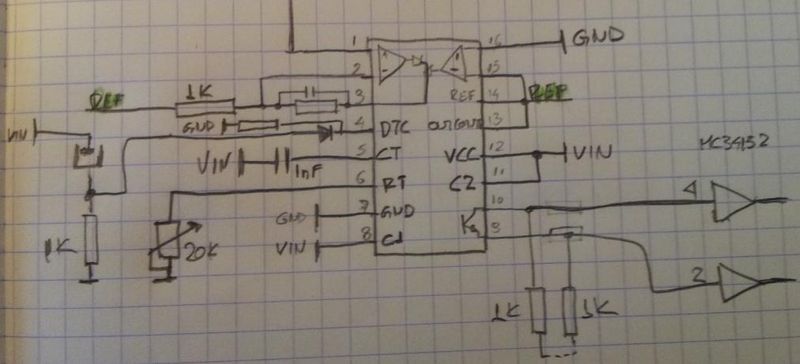 1 16 GND
2 15
REF 1K 3 REF 14 REF
GND 4 DTC OUTCONT 13
VIN 5 CT VCC 12 VIN MC34152
VIN 1nF C2 11
6 RT 10 4
GND 7 GND 9
1K 20K VIN 8 C1
2
1K 1K